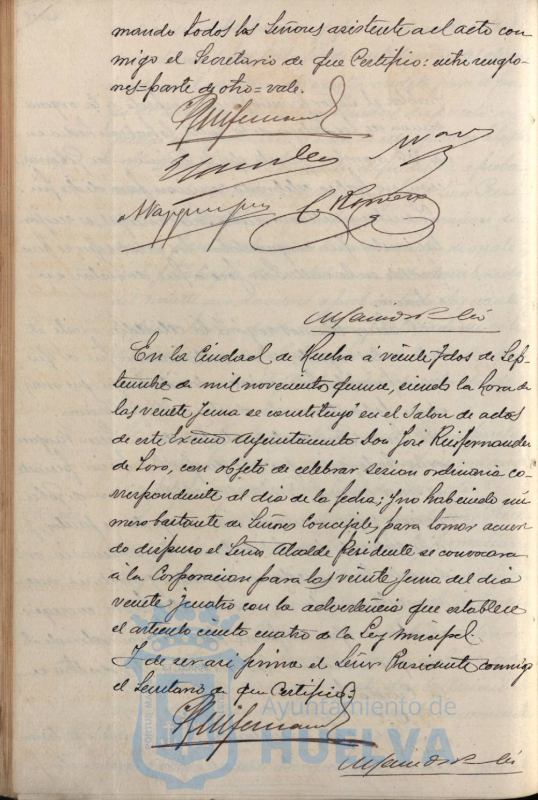 mando todos los Señores asistente al acto con
migo el Secretario de que Certifico: entre renglo-
nes=parte de otro=vale.
En la Ciudad de Huelva á veinte y dos de Sep-
tiembre de mil novecientos quince, siendo la hora de
las veinte y una se constituyó en el Salon de actos
de este Excmo Ayuntamiento Don José Ruifernandez
de Toro, con objeto de celebrar sesion ordinaria co-
rrespondiente al dia de la fecha; y no habiendo nú
mero bastante de Señores Concejales para tomar acuer
do dispuso el Señor Alcalde Presidente se convocara
á la Corporacion para las veinte y una del dia
veinte y cuatro con la advertencia que establece
el articulo ciento cuatro de la Ley municipal.
Y de ser asi firma el Señor Presidente conmigo
el Secretario de que Certifico:
Ayuntamiento de
HUELVA